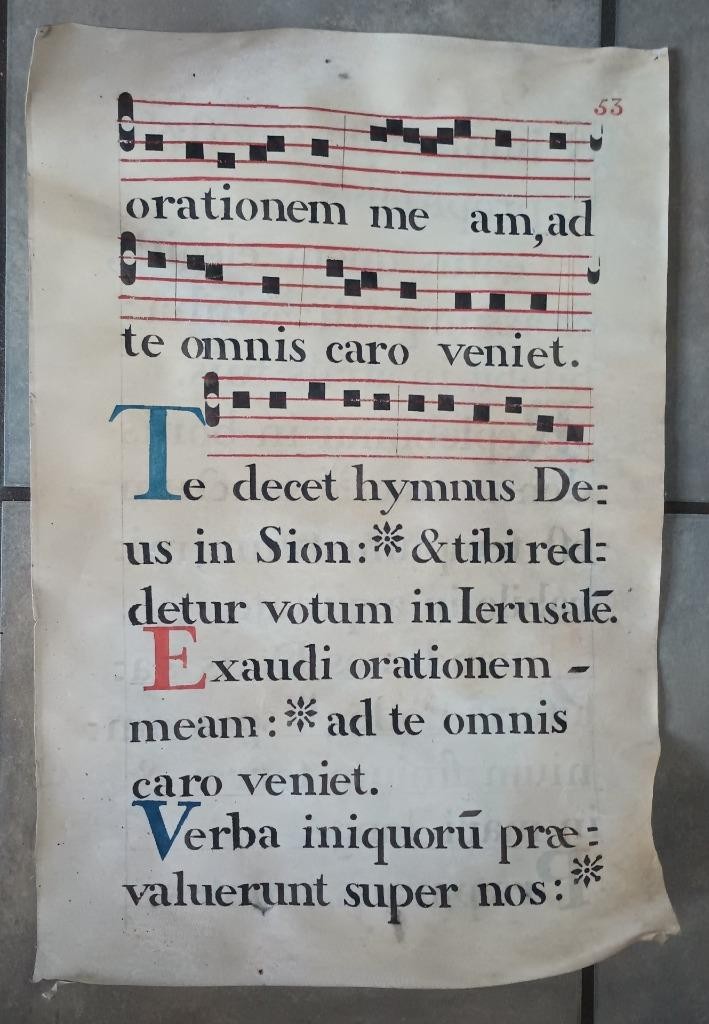 53
orationem me am, ad
te omnis caro veniet.
Te decet hymnus De:
us in Sion: * & tibi red:
detur votum in Ierusalē.
Exaudi orationem -
meam: * ad te omnis
caro veniet.
Verba iniquorū præ:
valuerunt super nos: *